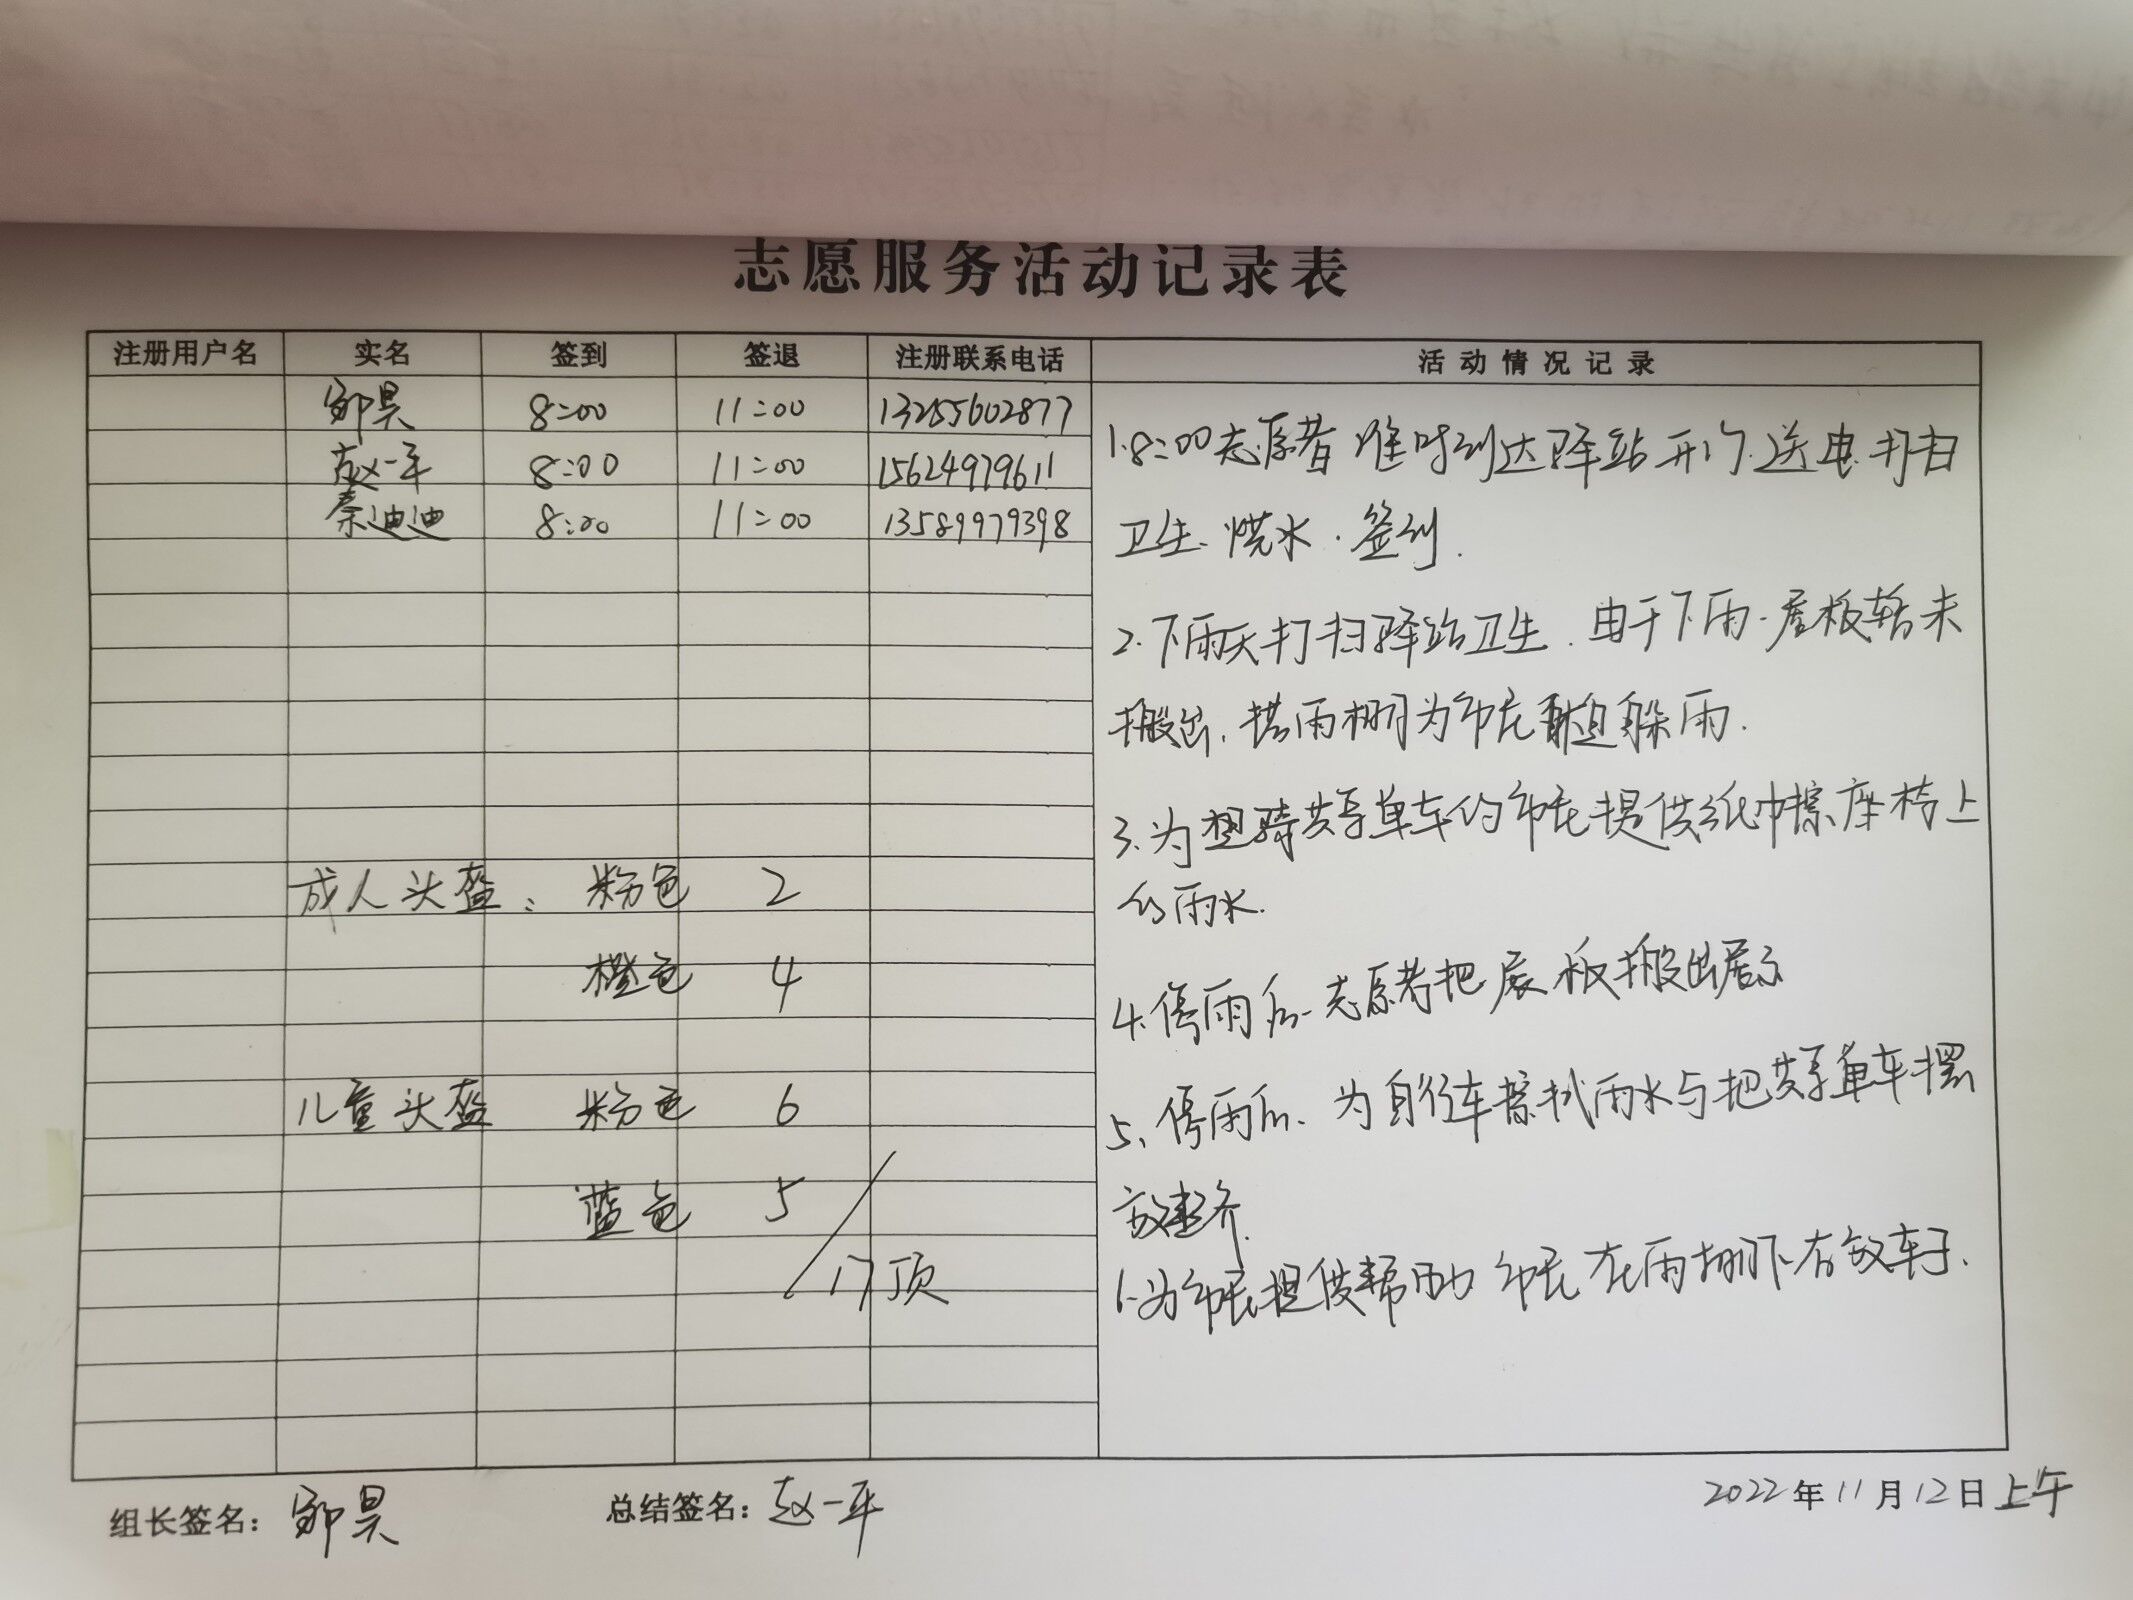 志愿服务活动记录表
注册用户名 实名 签到 签退 注册联系电话 活动情况记录
邹昊 8:00 11:00 13255602877
赵一平 8:00 11:00 15624979611
秦迪迪 8:00 11:00 13589979398
成人头盔: 粉色 2
橙色 4
儿童头盔 粉色 6
蓝色 5
17顶
1.8:00志愿者准时到达驿站开门.送电.打扫
卫生、烧水.签到.
2.下雨天打扫驿站卫生.由于下雨.展板暂未
搬出.搭雨棚为市民躲雨.
3.为想骑共享单车的市民提供纸巾擦座椅上
的雨水.
4.停雨后.志愿者把展板搬出展示
5、停雨后、为自行车擦拭雨水与把共享单车摆
放整齐.
6.为市民提供帮助 市民在雨棚下存放车子.
组长签名: 邹昊 总结签名: 赵一平 2022年11月12日上午